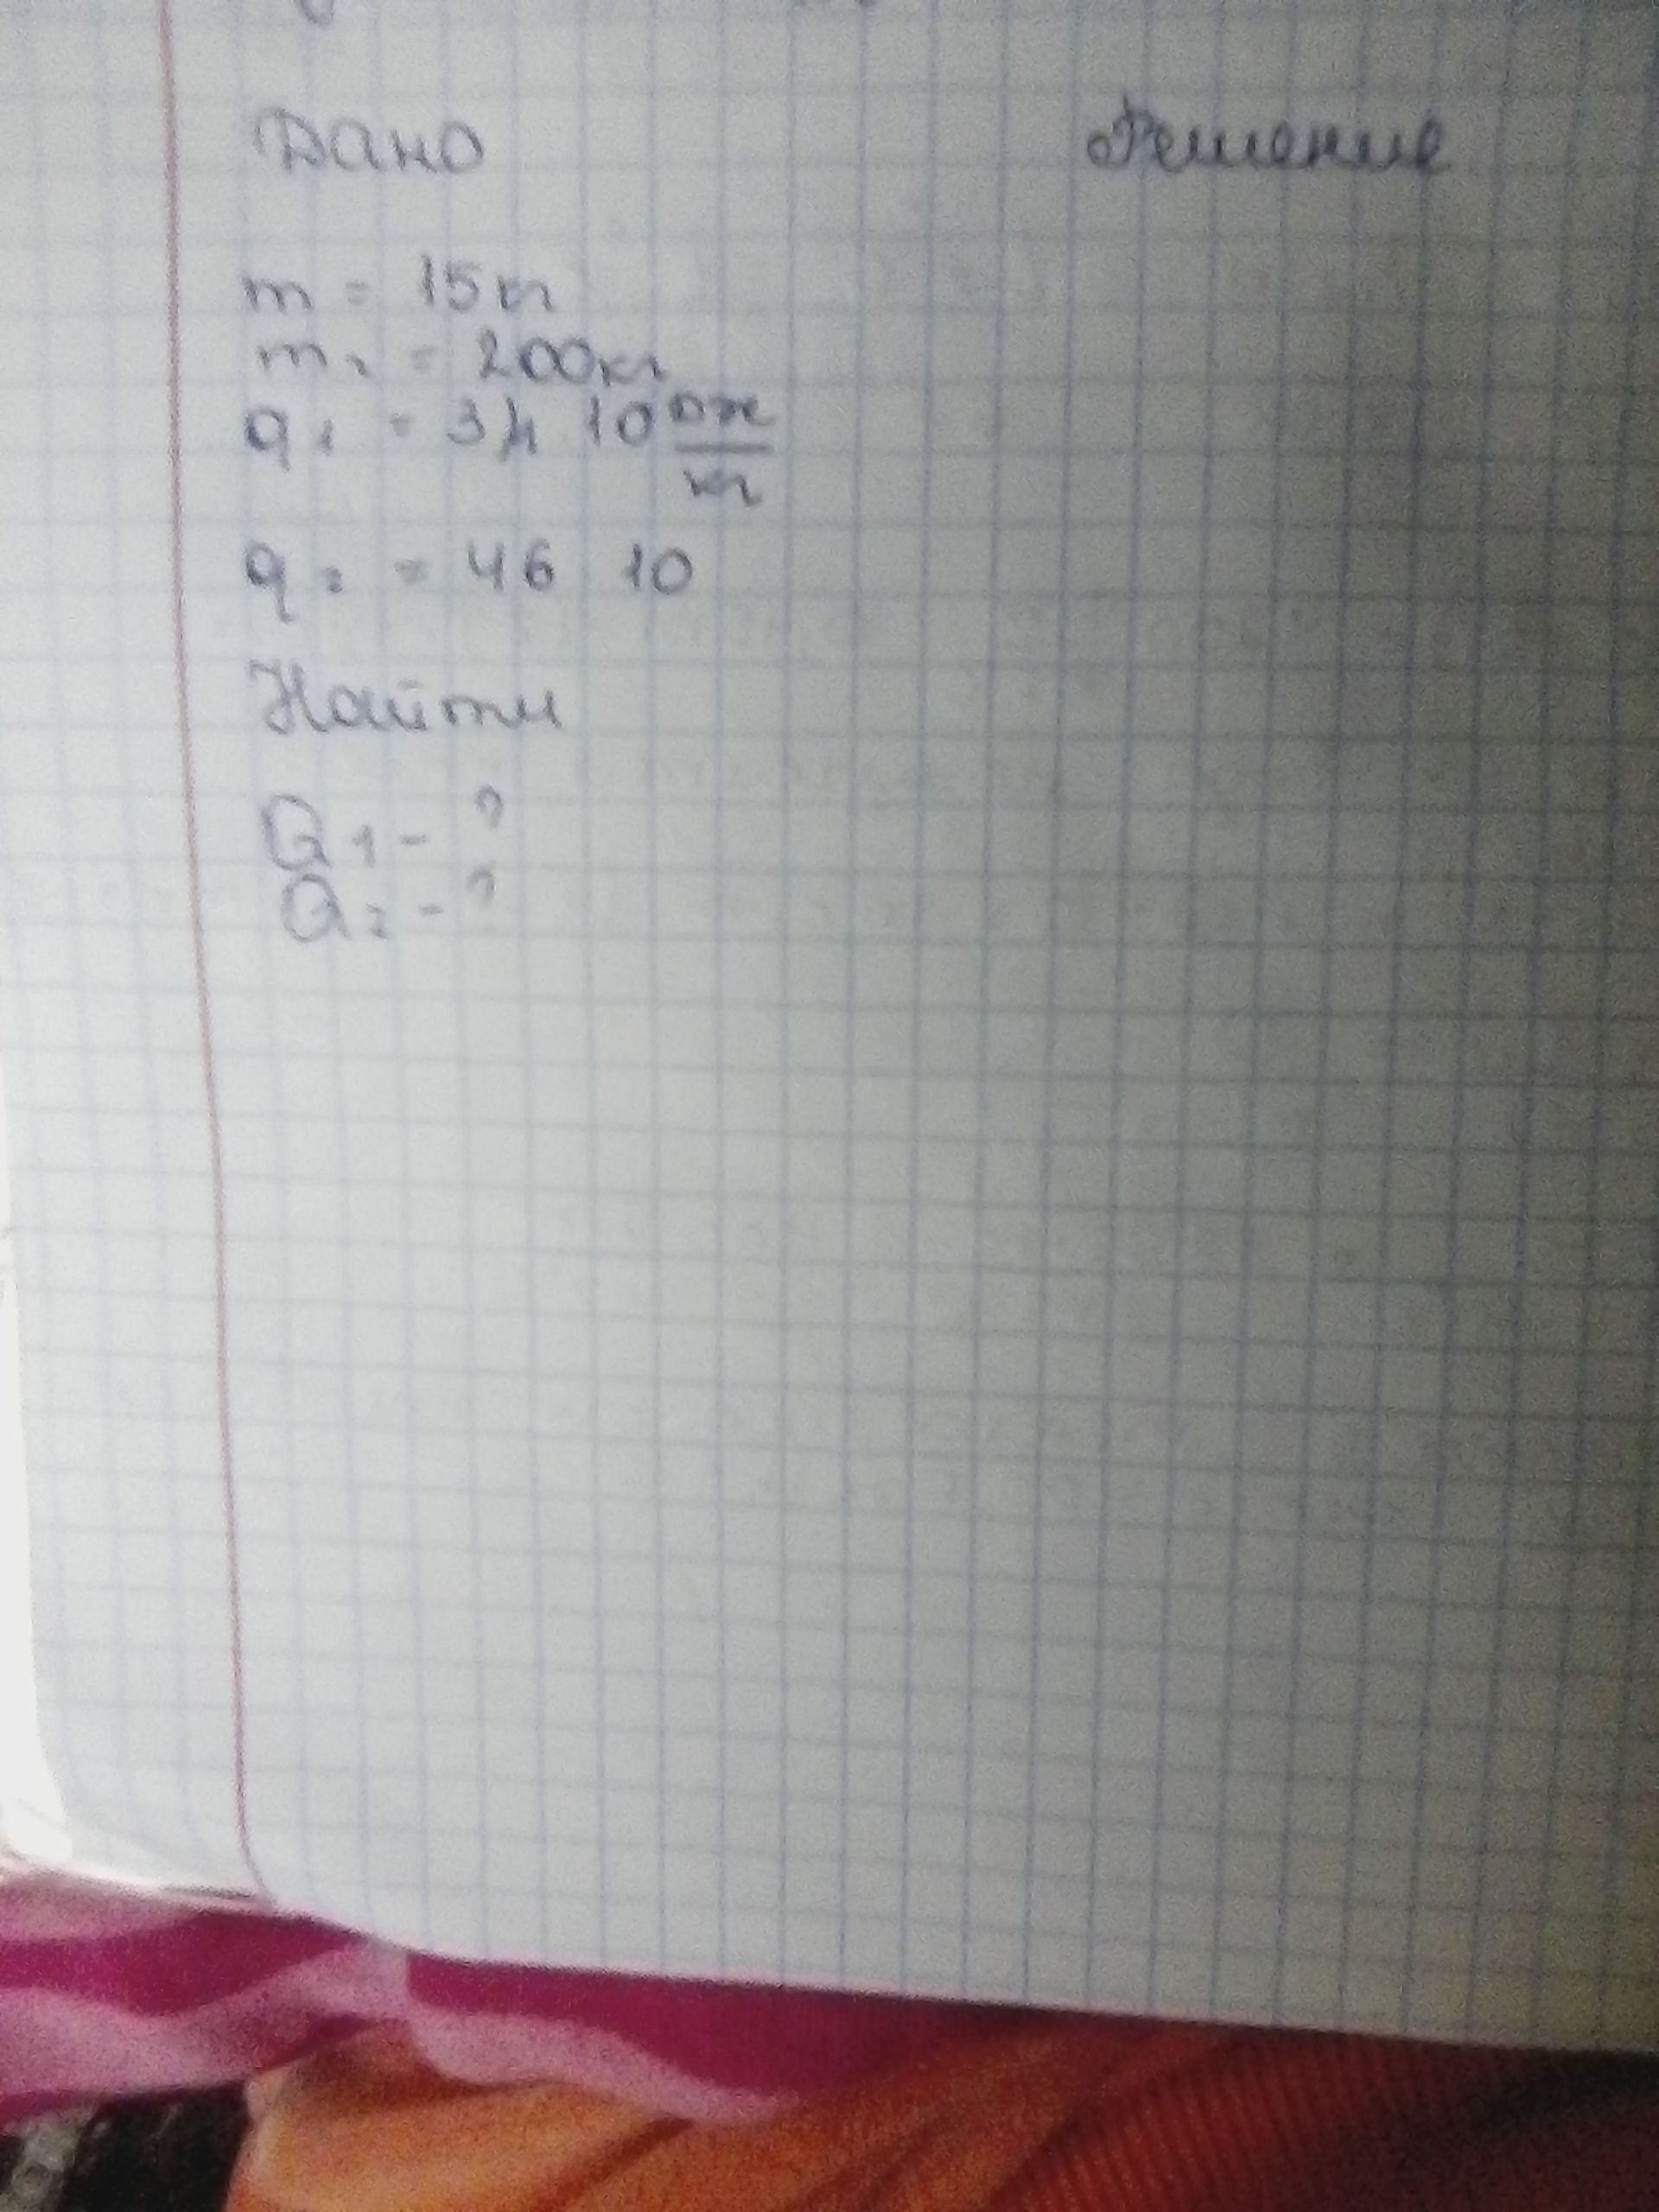 Дано Решение
m = 15кг
m₂ = 200кг
q₁ = 34 10 Дж
кг
q₂ = 46 10
Найти
Q₁ - ?
Q₂ - ?